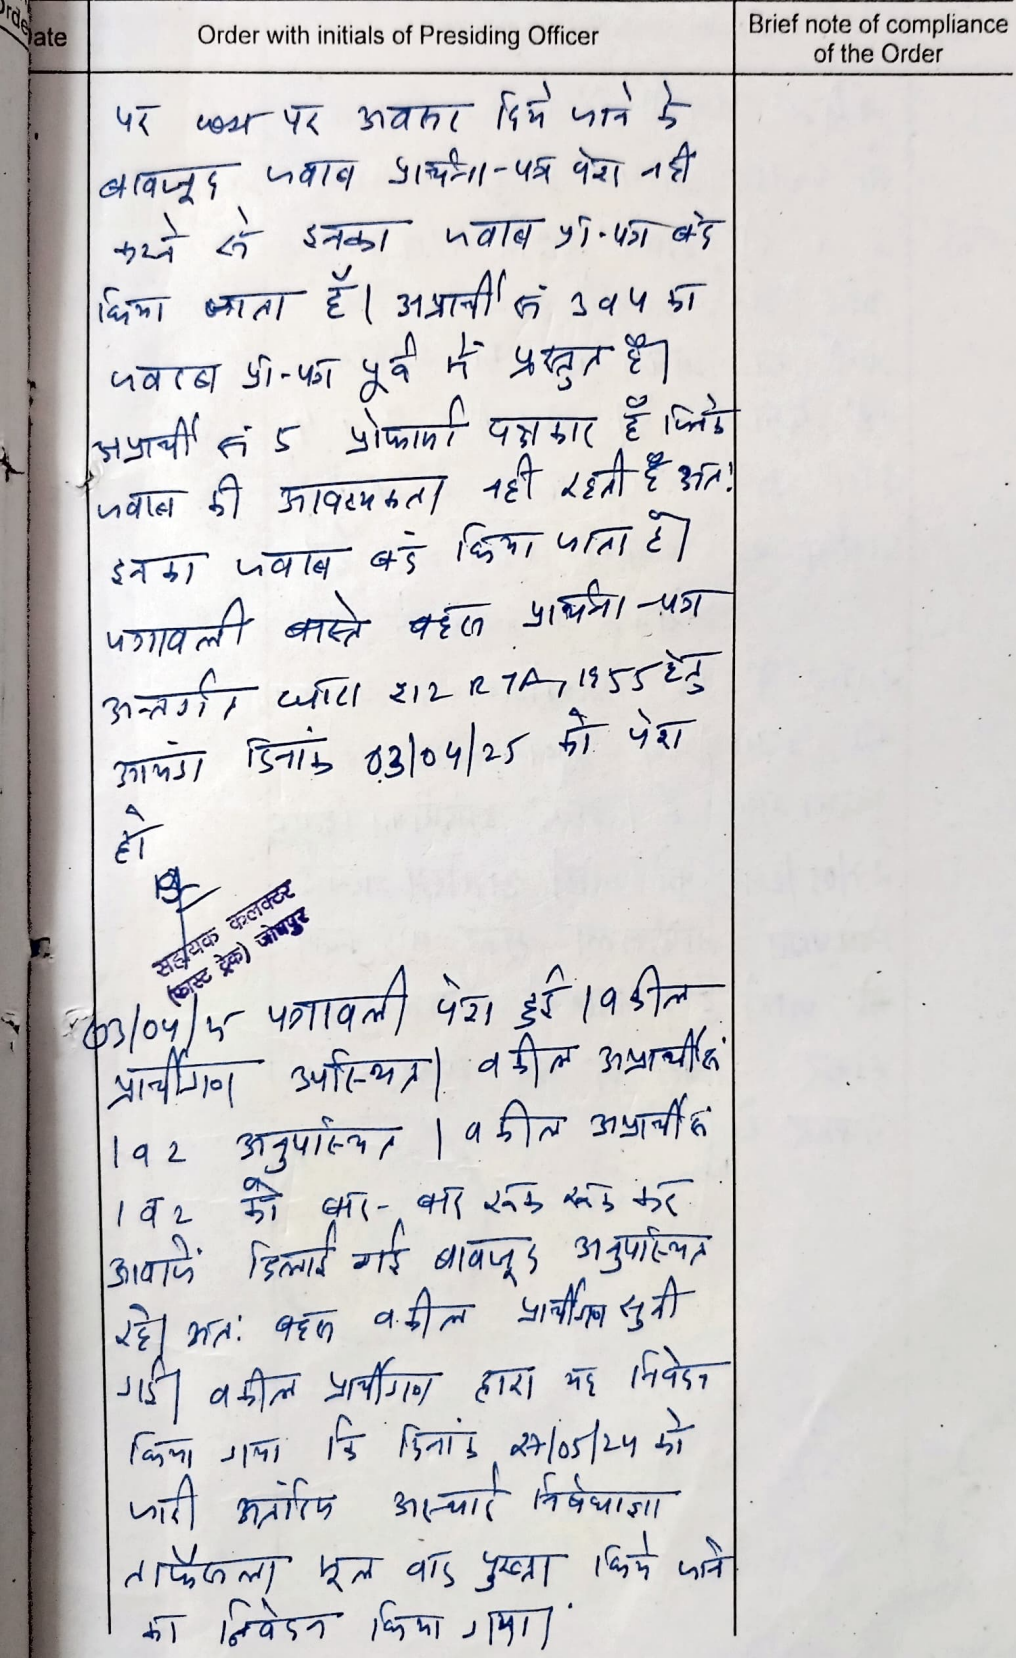 Order with initials of Presiding Officer
Brief note of compliance
of the Order
ate
पर पर अवसर दिये जाने के
बावजूद जवाब प्रार्थना-पत्र पेश नहीं
करने से इनका जवाब प्रा.पत्र बंद
किया जाता है। अप्रार्थी सं 3 व 4 का
जवाब प्रा-पत्र पूर्व में प्रस्तुत है।
अप्रार्थी सं 5 प्रोफार्मा पक्षकार है जिनके
जवाब की आवश्यकता नही रहती है अतः
इनका जवाब बंद किया जाता है।
पत्रावली वास्ते बहस प्रार्थना-पत्र
अन्तर्गत धारा 212 RTA, 1955 हेतु
आयंदा दिनांक 03/04/25 को पेश
हो
सहायक कलक्टर
(फास्ट ट्रेक) जोधपुर
03/04/25 पत्रावली पेश हुई । वकील
प्रार्थीगण उपस्थित। वकील अप्रार्थी सं
1 व 2 अनुपस्थित । वकील अप्रार्थी सं
1 व 2 को बार-बार रूक रूक कर
आवाजें दिलाई गई बावजूद अनुपस्थित
रहे। अतः बहस वकील प्रार्थीगण सुनी
गई। वकील प्रार्थीगण द्वारा यह निवेदन
किया गया कि दिनांक 27/05/24 को
जारी अंतरिम अस्थाई निषेधाज्ञा
ताफैसला मूल वाद पुख्ता किये जाने
का निवेदन किया गया।